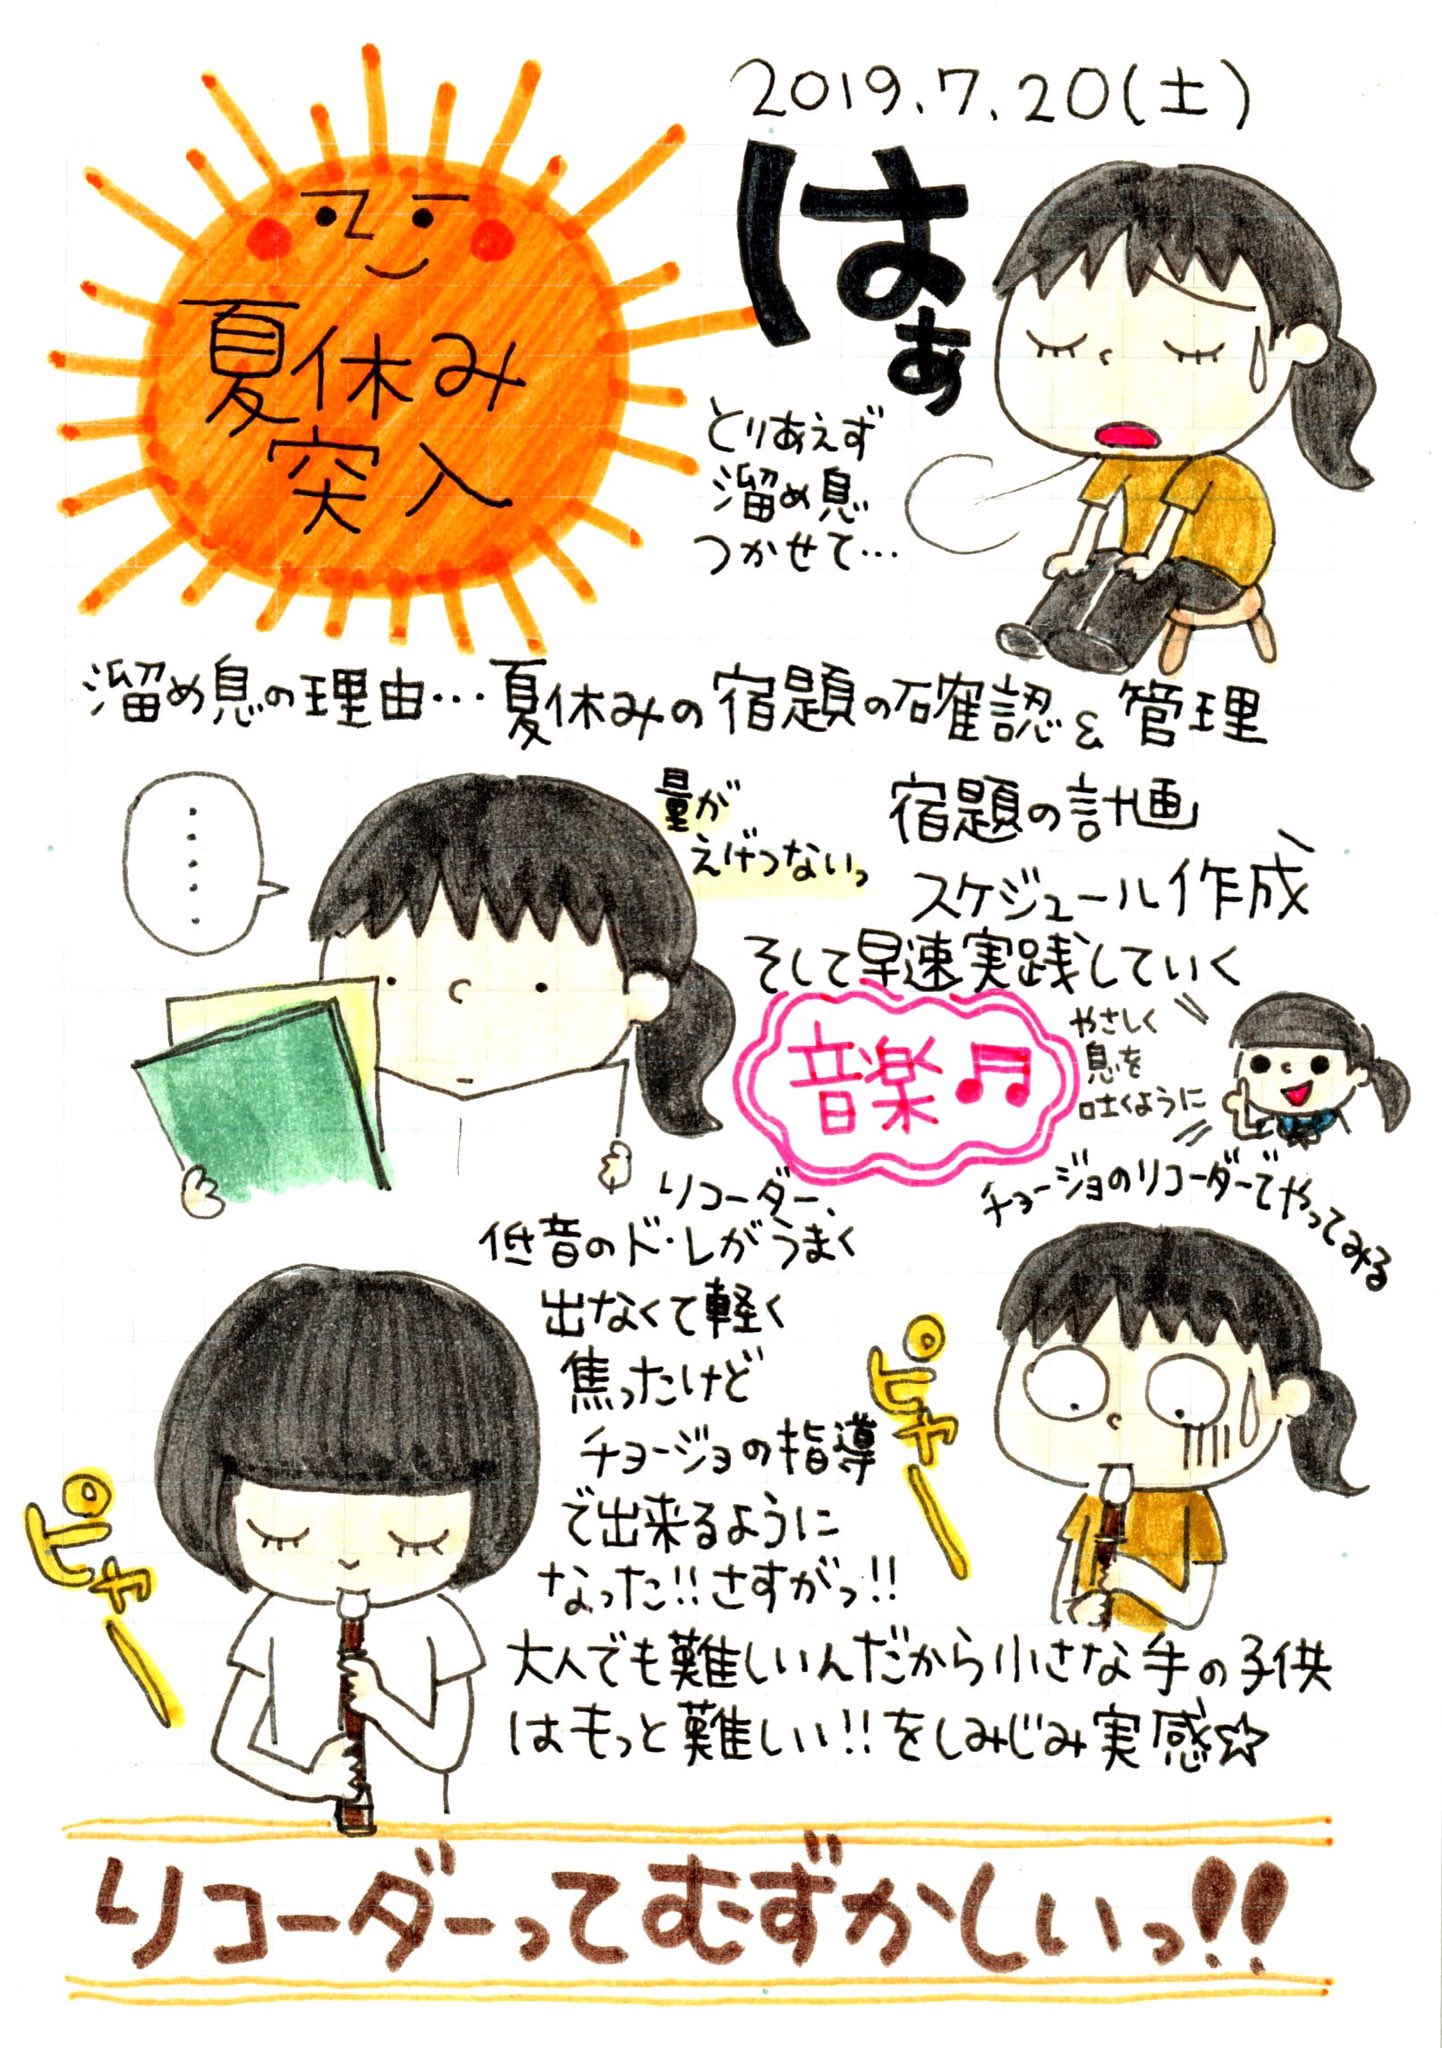 2019.7.20(土)
夏休み
突入
はぁ
とりあえず
溜め息
つかせて…
溜め息の理由…夏休みの宿題の確認&管理
……
量が
えげつないっ
宿題の計画、
スケジュール作成
そして早速実践していく
音楽♫
やさしく
息を
吐くように
チョージョのリコーダーでやってみる
リコーダー、
低音のド・レがうまく
出なくて軽く
焦ったけど
チョージョの指導
で出来るように
なった!!さすがっ!!
ピャー
ピャー
大人でも難しいんだから小さな手の子供
はもっと難しい!!をしみじみ実感☆
リコーダーってむずかしいっ!!